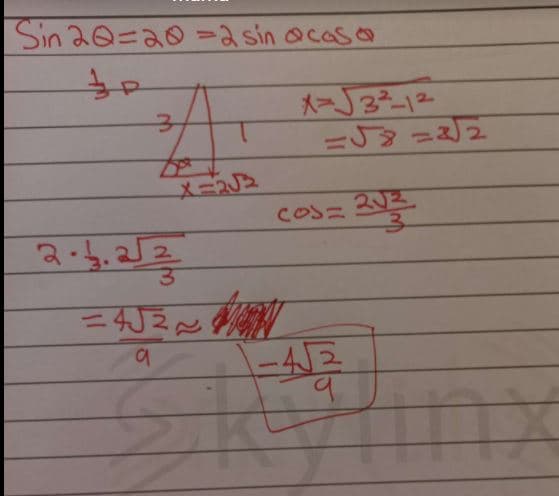 Sin 2θ = 2θ = 2 sin θ cos θ
1/3 D
3
1
θ
x = 2√2
x = √3²-1²
= √8 = 2√2
cos = 2√2/3
2 · 1/3 · 2√2/3
= 4√2/9 ≈
-4√2/9
Skylinx